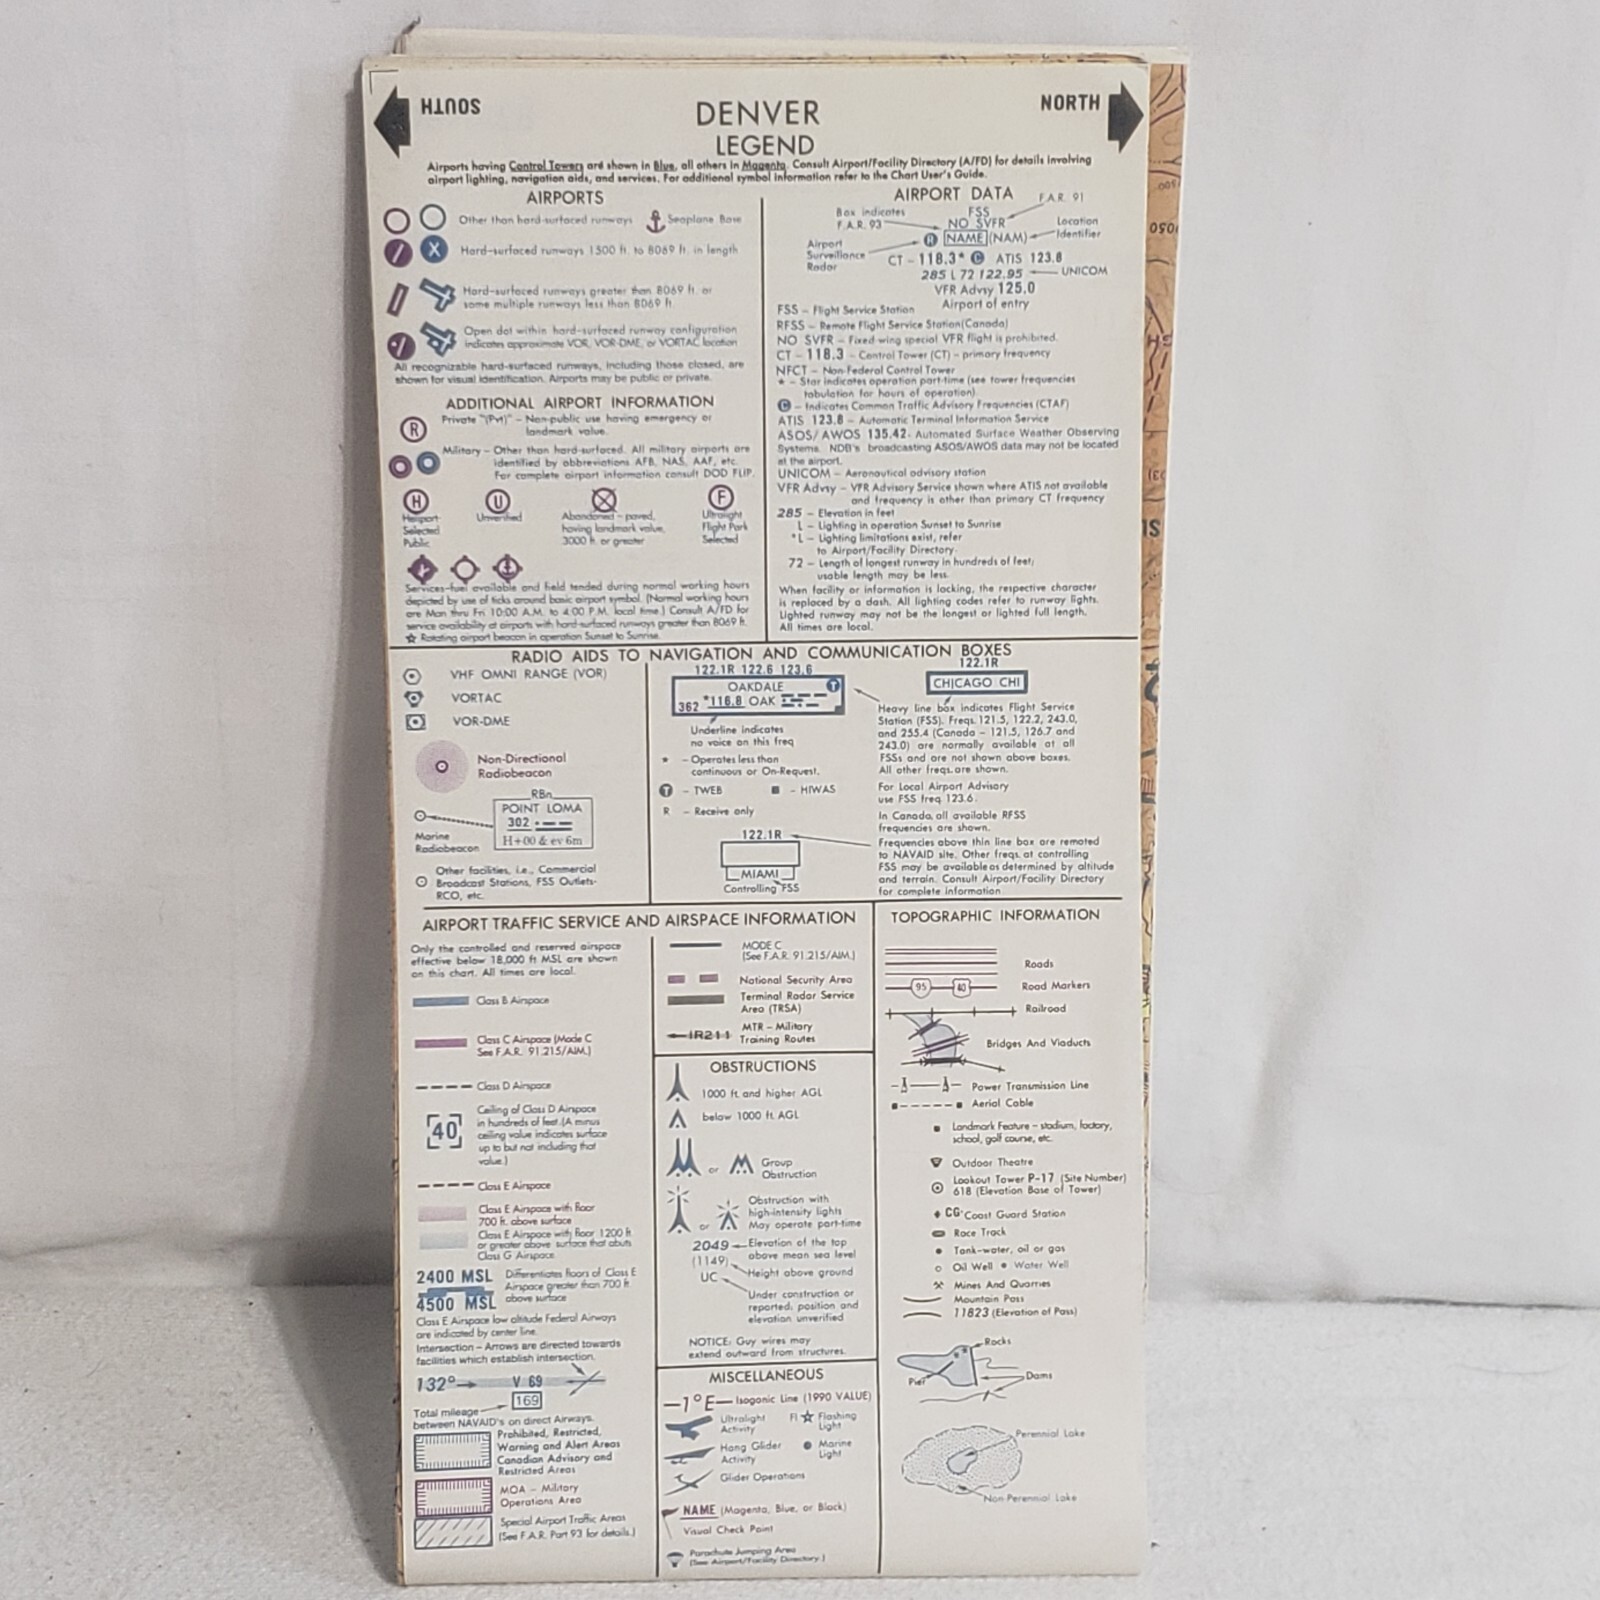 SOUTH
NORTH
DENVER
LEGEND
Airports having Control Towers are shown in Blue, all others in Magenta. Consult Airport/Facility Directory (A/FD) for details involving
airport lighting, navigation aids, and services. For additional symbol information refer to the Chart User's Guide.
AIRPORTS
Other than hard-surfaced runways
Seaplane Base
Hard-surfaced runways 1500 ft. to 8069 ft. in length
Hard-surfaced runways greater than 8069 ft. or
some multiple runways less than 8069 ft.
Open dot within hard-surfaced runway configuration
indicates approximate VOR, VOR-DME, or VORTAC location
All recognizable hard-surfaced runways, including those closed, are
shown for visual identification. Airports may be public or private.
ADDITIONAL AIRPORT INFORMATION
R
Private "(Pvt)" - Non-public use having emergency or
landmark value.
Military - Other than hard-surfaced. All military airports are
identified by abbreviations AFB, NAS, AAF, etc.
For complete airport information consult DOD FLIP.
H
U
F
Heliport
Selected
Public
Unverified
Abandoned - paved,
having landmark value,
3000 ft. or greater
Ultralight
Flight Park
Selected
Services-fuel available and field tended during normal working hours
depicted by use of ticks around basic airport symbol. (Normal working hours
are Mon thru Fri 10:00 A.M. to 4:00 P.M. local time.) Consult A/FD for
service availability at airports with hard-surfaced runways greater than 8069 ft.
Rotating airport beacon in operation Sunset to Sunrise.
AIRPORT DATA
F.A.R. 91
Box indicates
F.A.R. 93
FSS
NO SVFR
Location
Identifier
R NAME (NAM)
Airport
Surveillance
Radar
CT - 118.3* C ATIS 123.8
285 L 72 122.95
UNICOM
VFR Advsy 125.0
Airport of entry
FSS - Flight Service Station
RFSS - Remote Flight Service Station(Canada)
NO SVFR - Fixed-wing special VFR flight is prohibited.
CT - 118.3 - Control Tower (CT) - primary frequency
NFCT - Non-Federal Control Tower
* - Star indicates operation part-time (see tower frequencies
tabulation for hours of operation)
C - Indicates Common Traffic Advisory Frequencies (CTAF)
ATIS 123.8 - Automatic Terminal Information Service
ASOS/AWOS 135.42- Automated Surface Weather Observing
Systems. NDB's broadcasting ASOS/AWOS data may not be located
at the airport.
UNICOM - Aeronautical advisory station
VFR Advsy - VFR Advisory Service shown where ATIS not available
and frequency is other than primary CT frequency
285 - Elevation in feet
L - Lighting in operation Sunset to Sunrise
*L - Lighting limitations exist, refer
to Airport/Facility Directory.
72 - Length of longest runway in hundreds of feet;
usable length may be less.
When facility or information is lacking, the respective character
is replaced by a dash. All lighting codes refer to runway lights.
Lighted runway may not be the longest or lighted full length.
All times are local.
RADIO AIDS TO NAVIGATION AND COMMUNICATION BOXES
VHF OMNI RANGE (VOR)
VORTAC
VOR-DME
Non-Directional
Radiobeacon
RBn
POINT LOMA
302
H+00 & ev 6m
Marine
Radiobeacon
Other facilities, i.e., Commercial
Broadcast Stations, FSS Outlets-
RCO, etc.
122.1R 122.6 123.6
OAKDALE
T
362 *116.8 OAK
Underline indicates
no voice on this freq
* - Operates less than
continuous or On-Request.
T - TWEB
- HIWAS
R - Receive only
122.1R
MIAMI
Controlling FSS
122.1R
CHICAGO CHI
Heavy line box indicates Flight Service
Station (FSS). Freqs. 121.5, 122.2, 243.0,
and 255.4 (Canada - 121.5, 126.7 and
243.0) are normally available at all
FSSs and are not shown above boxes.
All other freqs. are shown.
For Local Airport Advisory
use FSS freq 123.6.
In Canada, all available RFSS
frequencies are shown.
Frequencies above thin line box are remoted
to NAVAID site. Other freqs. at controlling
FSS may be available as determined by altitude
and terrain. Consult Airport/Facility Directory
for complete information.
AIRPORT TRAFFIC SERVICE AND AIRSPACE INFORMATION
Only the controlled and reserved airspace
effective below 18,000 ft MSL are shown
on this chart. All times are local.
Class B Airspace
Class C Airspace (Mode C
See F.A.R. 91.215/AIM.)
Class D Airspace
40
Ceiling of Class D Airspace
in hundreds of feet. (A minus
ceiling value indicates surface
up to but not including that
value.)
Class E Airspace
Class E Airspace with floor
700 ft. above surface
Class E Airspace with floor 1200 ft.
or greater above surface that abuts
Class G Airspace.
2400 MSL
4500 MSL
Differentiates floors of Class E
Airspace greater than 700 ft.
above surface
Class E Airspace low altitude Federal Airways
are indicated by center line.
Intersection - Arrows are directed towards
facilities which establish intersection.
132°
V 69
169
Total mileage
between NAVAID's on direct Airways.
Prohibited, Restricted,
Warning and Alert Areas
Canadian Advisory and
Restricted Areas
MOA - Military
Operations Area
Special Airport Traffic Areas
(See F.A.R. Part 93 for details.)
MODE C
(See F.A.R. 91.215/AIM.)
National Security Area
Terminal Radar Service
Area (TRSA)
IR211
MTR - Military
Training Routes
OBSTRUCTIONS
1000 ft. and higher AGL
below 1000 ft. AGL
or
Group
Obstruction
or
Obstruction with
high-intensity lights
May operate part-time
2049
(1149)
UC
Elevation of the top
above mean sea level
Height above ground
Under construction or
reported; position and
elevation unverified
NOTICE: Guy wires may
extend outward from structures.
MISCELLANEOUS
1°E
Isogonic Line (1990 VALUE)
Ultralight
Activity
Fl
Flashing
Light
Hang Glider
Activity
Marine
Light
Glider Operations
NAME (Magenta, Blue, or Black)
Visual Check Point
Parachute Jumping Area
(See Airport/Facility Directory.)
TOPOGRAPHIC INFORMATION
Roads
95
40
Road Markers
Railroad
Bridges And Viaducts
Power Transmission Line
Aerial Cable
Landmark Feature - stadium, factory,
school, golf course, etc.
Outdoor Theatre
Lookout Tower P-17 (Site Number)
618 (Elevation Base of Tower)
CG Coast Guard Station
Race Track
Tank-water, oil or gas
Oil Well
Water Well
Mines And Quarries
Mountain Pass
11823 (Elevation of Pass)
Rocks
Pier
Dams
Perennial Lake
Non-Perennial Lake